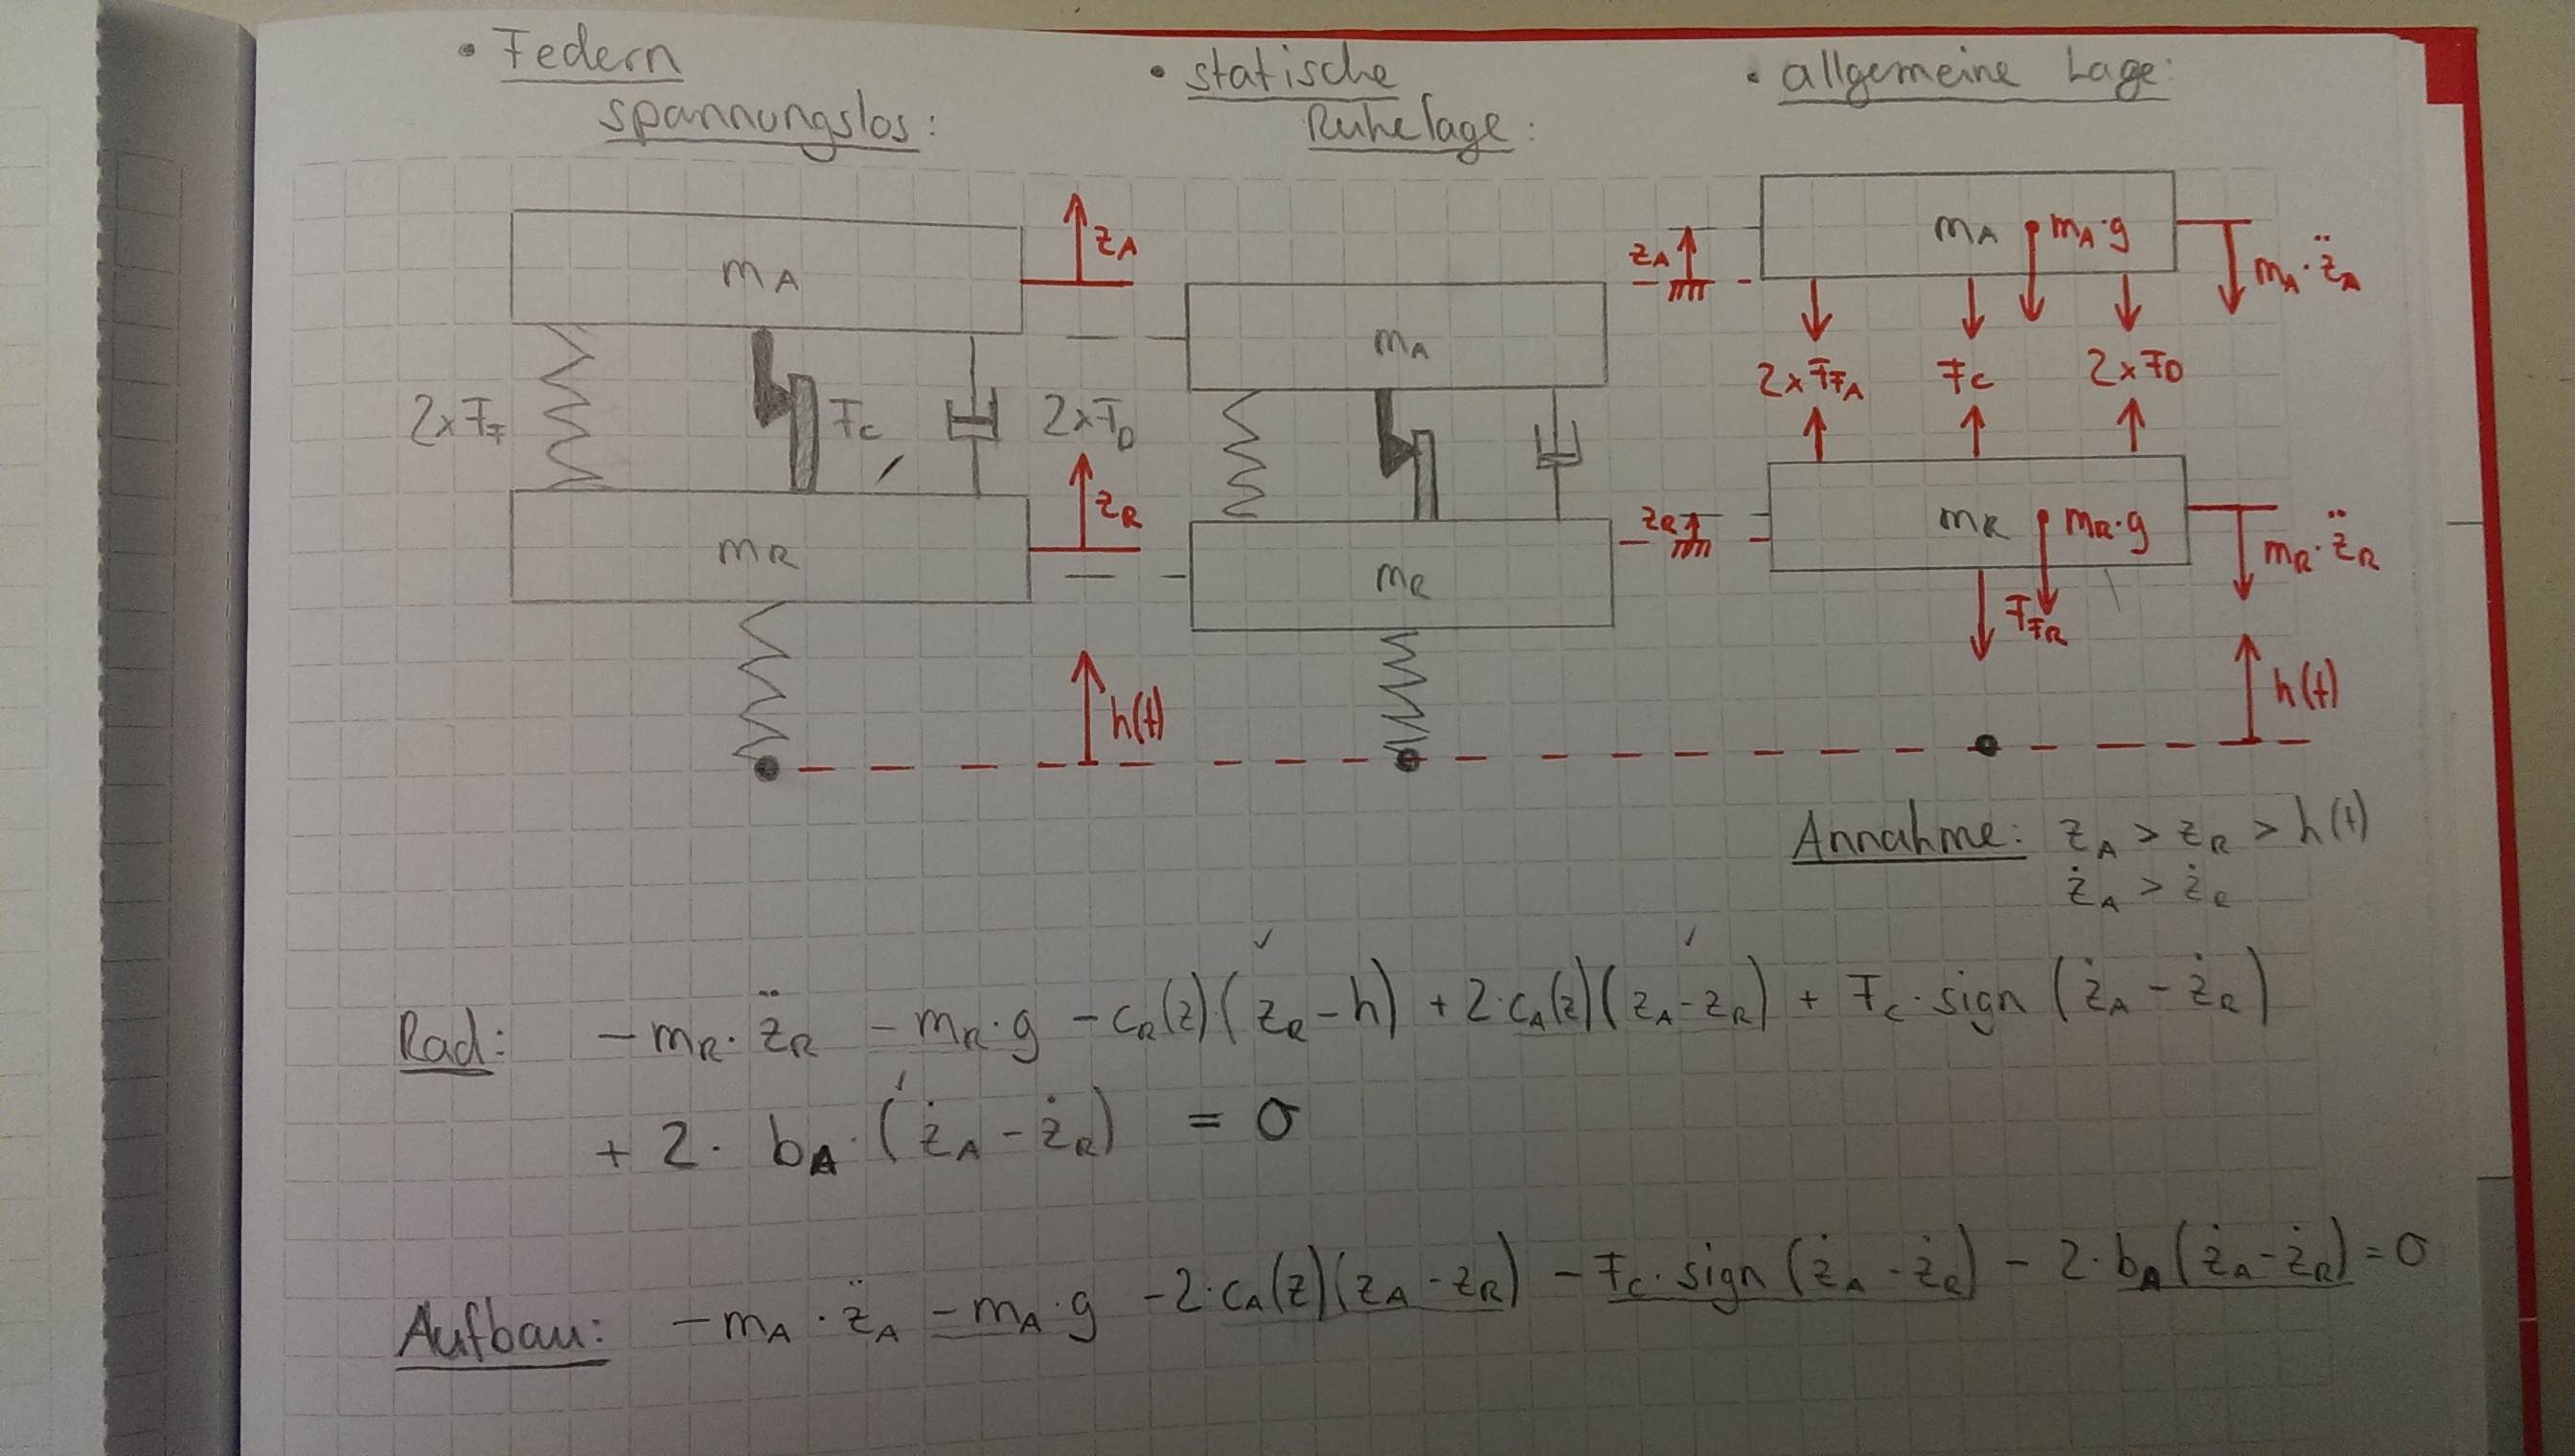 • Federn
spannungslos:
• statische
Ruhelage:
• allgemeine Lage:
m_A
z_A
2xF_F
F_C
2xF_D
m_R
z_R
h(t)
m_A
m_R
z_A
m_A
m_A·g
m_A·z̈_A
2xF_FA
F_C
2xF_D
z_R
m_R
m_R·g
m_R·z̈_R
F_FR
h(t)
Annahme: z_A > z_R > h(t)
ż_A > ż_R
Rad: -m_R·z̈_R -m_R·g -c_R(z)·(z_R-h) +2·c_A(z)(z_A-z_R) + F_C·sign(ż_A-ż_R)
+2·b_A·(ż_A-ż_R) = 0
Aufbau: -m_A·z̈_A -m_A·g -2·c_A(z)(z_A-z_R) -F_C·sign(ż_A-ż_R) -2·b_A(ż_A-ż_R)=0